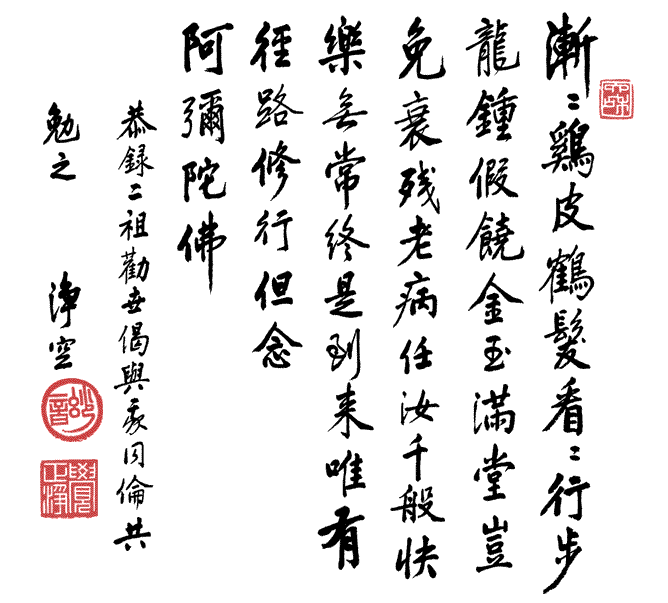 漸〻鷄皮鶴髮看〻行步
龍鍾假饒金玉滿堂豈
免衰残老病任汝千般快
樂无常終是到来唯有
徑路修行但念
阿彌陀佛
恭録二祖勸世偈與衆同倫共
勉之 淨空
妙音
正覺淨